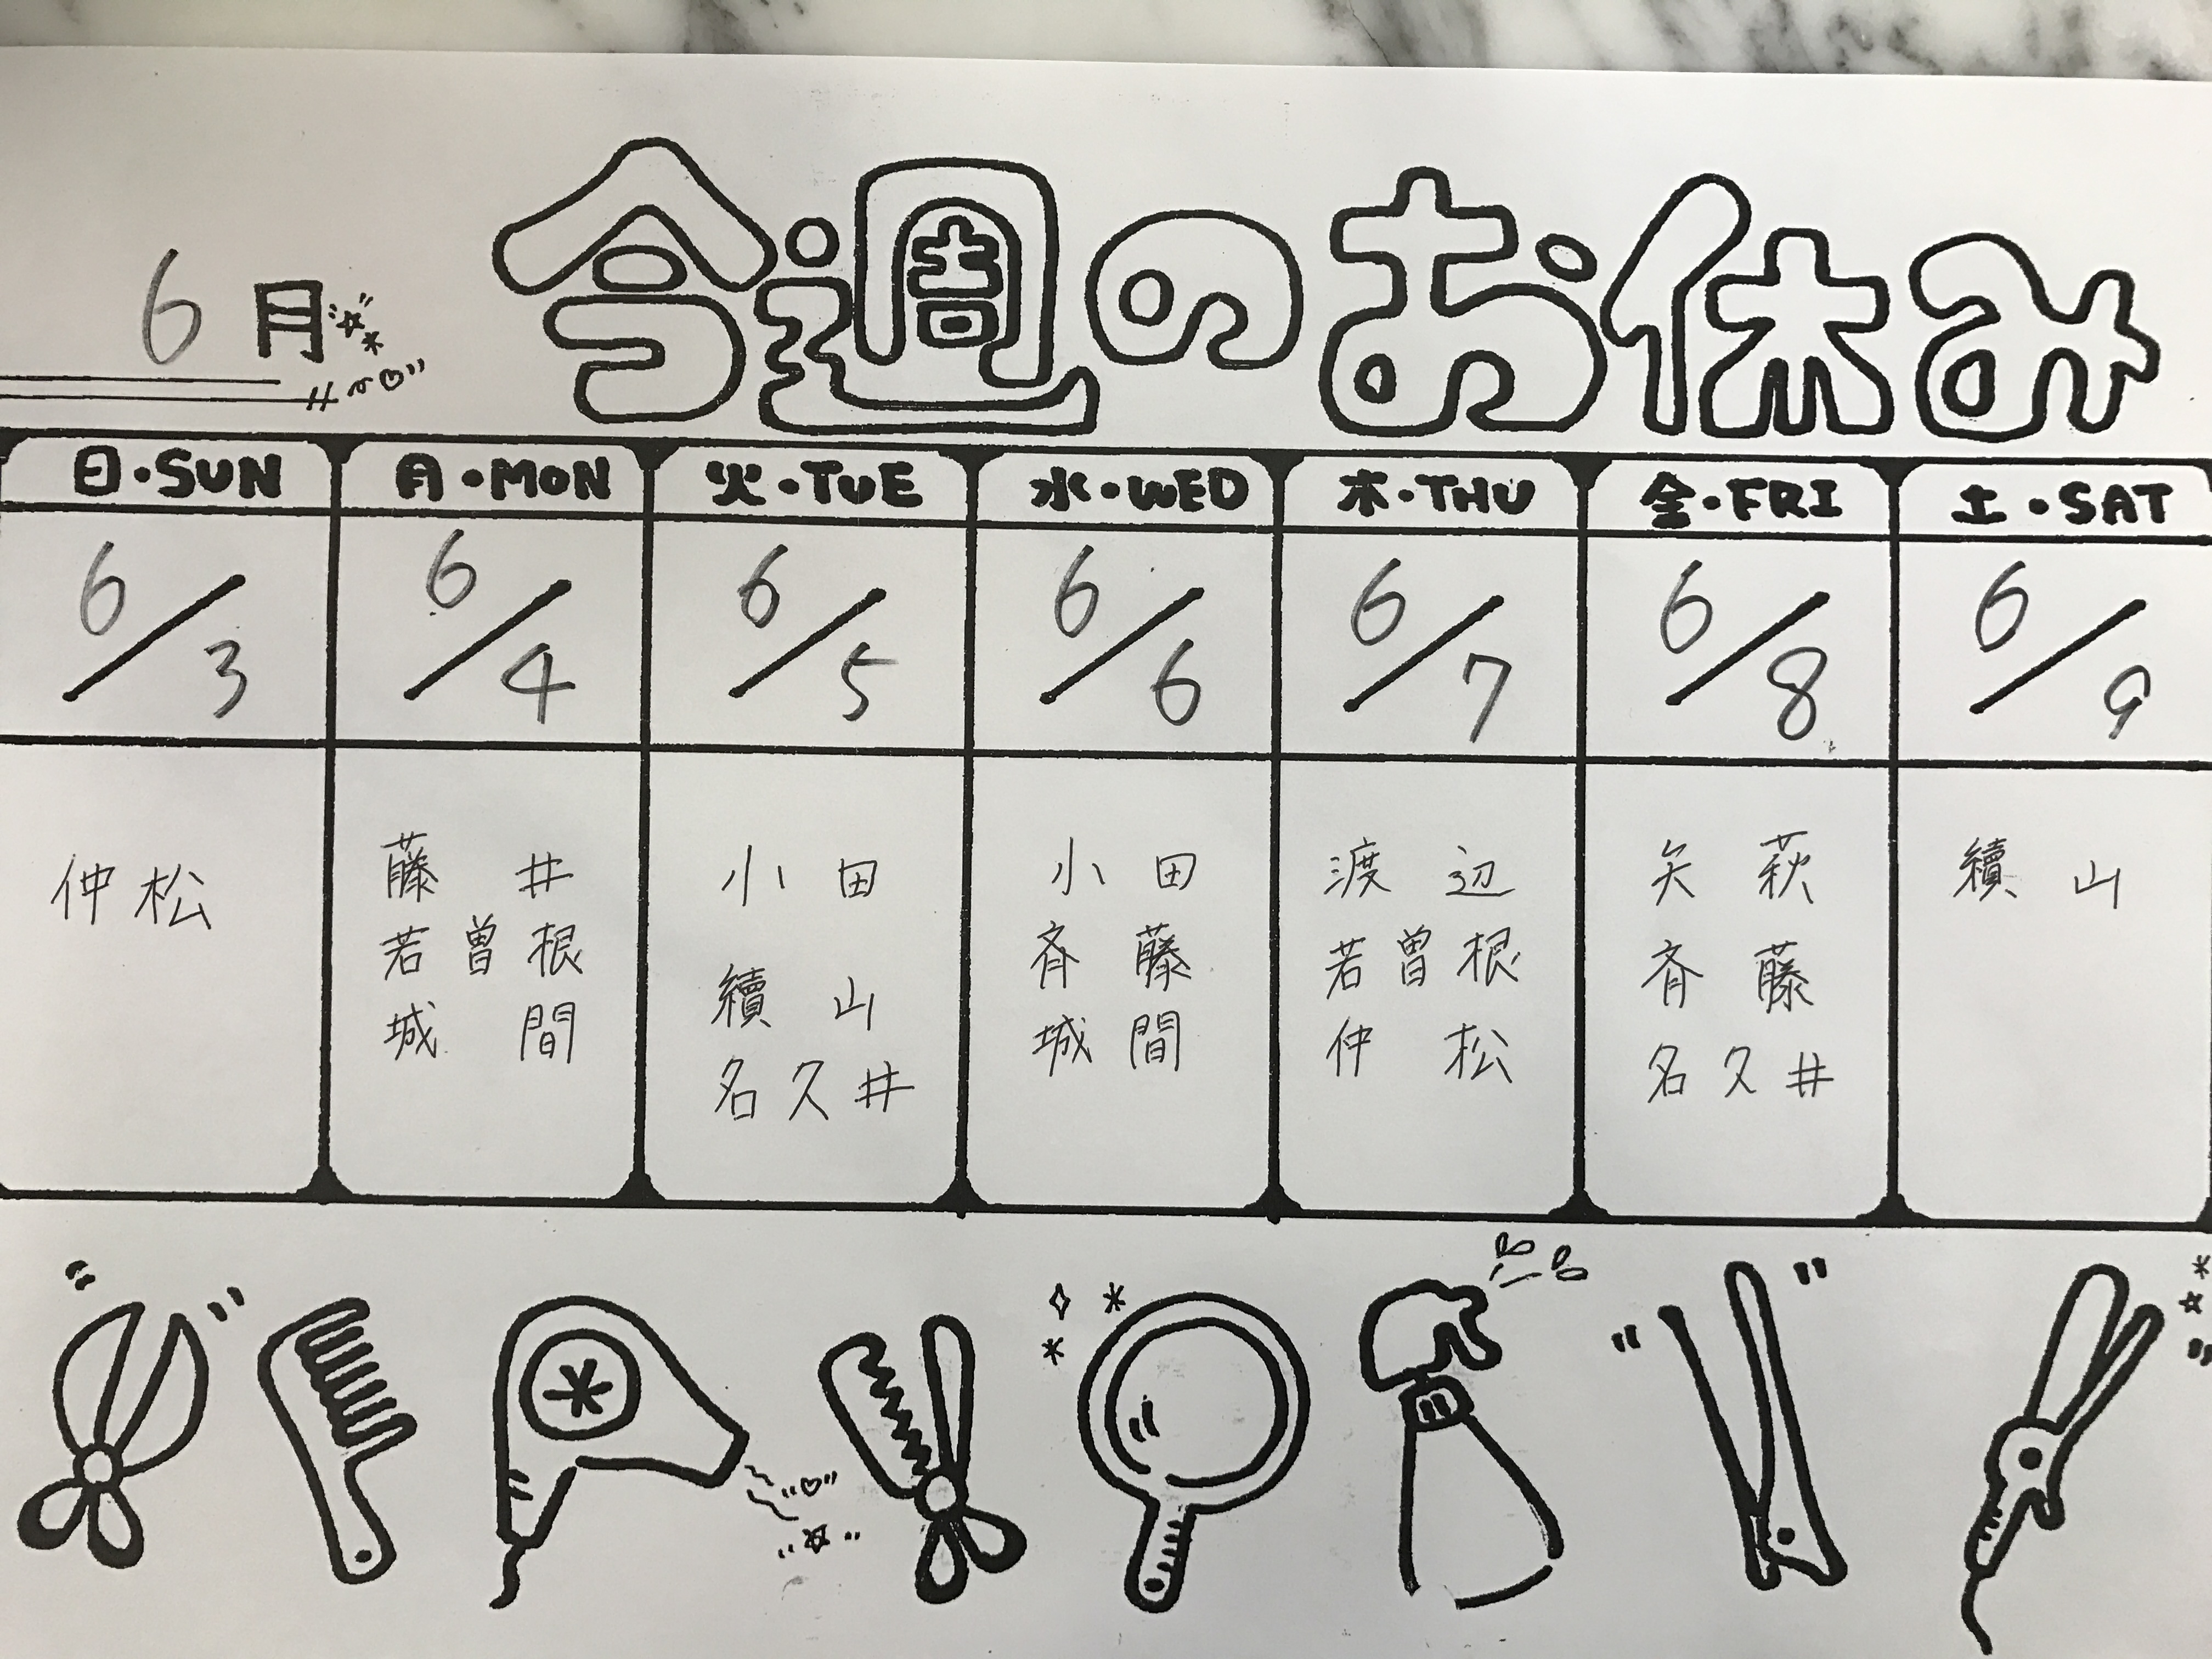 6月
今週のお休み
日・SUN 月・MON 火・TUE 水・WED 木・THU 金・FRI 土・SAT
6/3 6/4 6/5 6/6 6/7 6/8 6/9
仲松
藤井
若曽根
城間
小田
續山
名久井
小田
斉藤
城間
渡辺
若曽根
仲松
矢萩
斉藤
名久井
續山